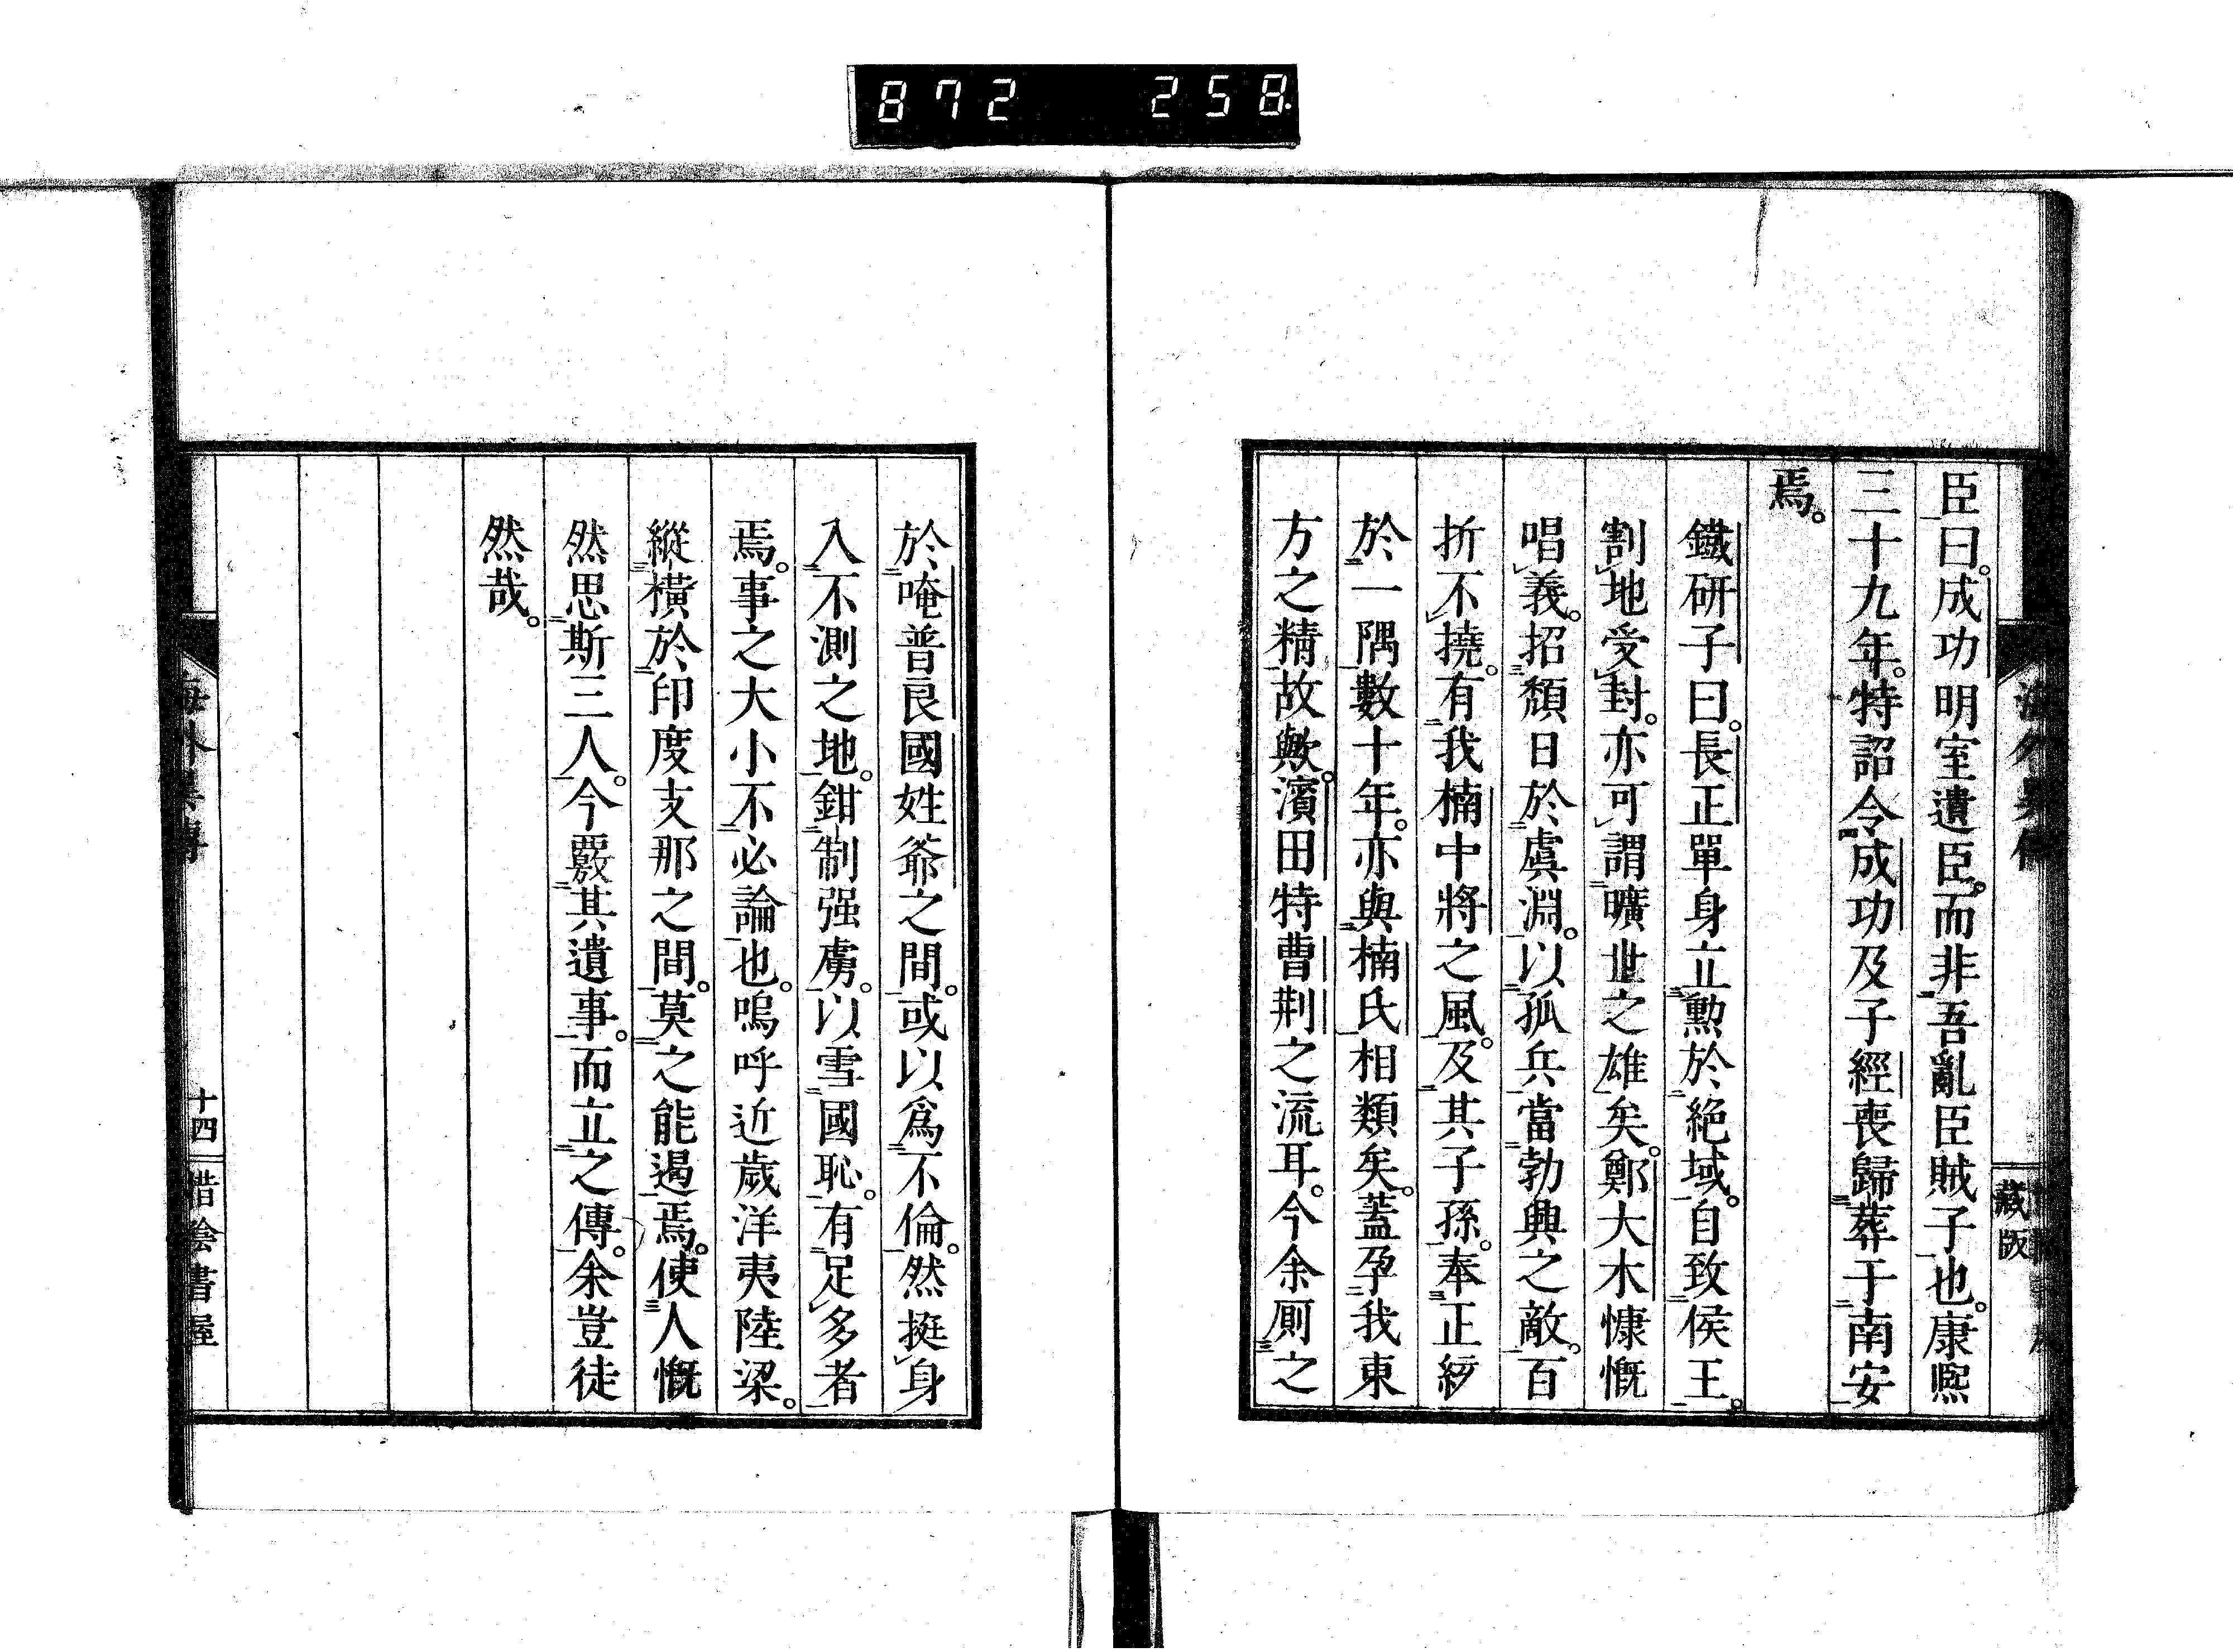 872 258
海外異傳
藏版
臣曰。成功明室遺臣。而非吾亂臣賊子也。康熙
三十九年。特詔令成功及子經喪歸葬于南安
焉。
鐵研子曰。長正單身立勲於絕域。自致侯王。
割地受封。亦可謂曠世之雄矣。鄭大木慷慨
唱義。招頹日於虞淵。以孤兵當勃興之敵。百
折不撓。有我楠中將之風。及其子孫。奉正紗
於一隅數十年。亦與楠氏相類矣。蓋孕我東
方之精故歟。濱田特曹荆之流耳。今余厠之
於唵普良國姓爺之間。或以爲不倫。然挺身
入不測之地。鉗制强虜。以雪國恥。有足多者
焉。事之大小不必論也。嗚呼近歲洋夷陸梁。
縱橫於印度支那之間。莫之能遏焉。使人慨
然思斯三人。今覈其遺事。而立之傳。余豈徒
然哉。
海外異傳
十四
惜陰書屋